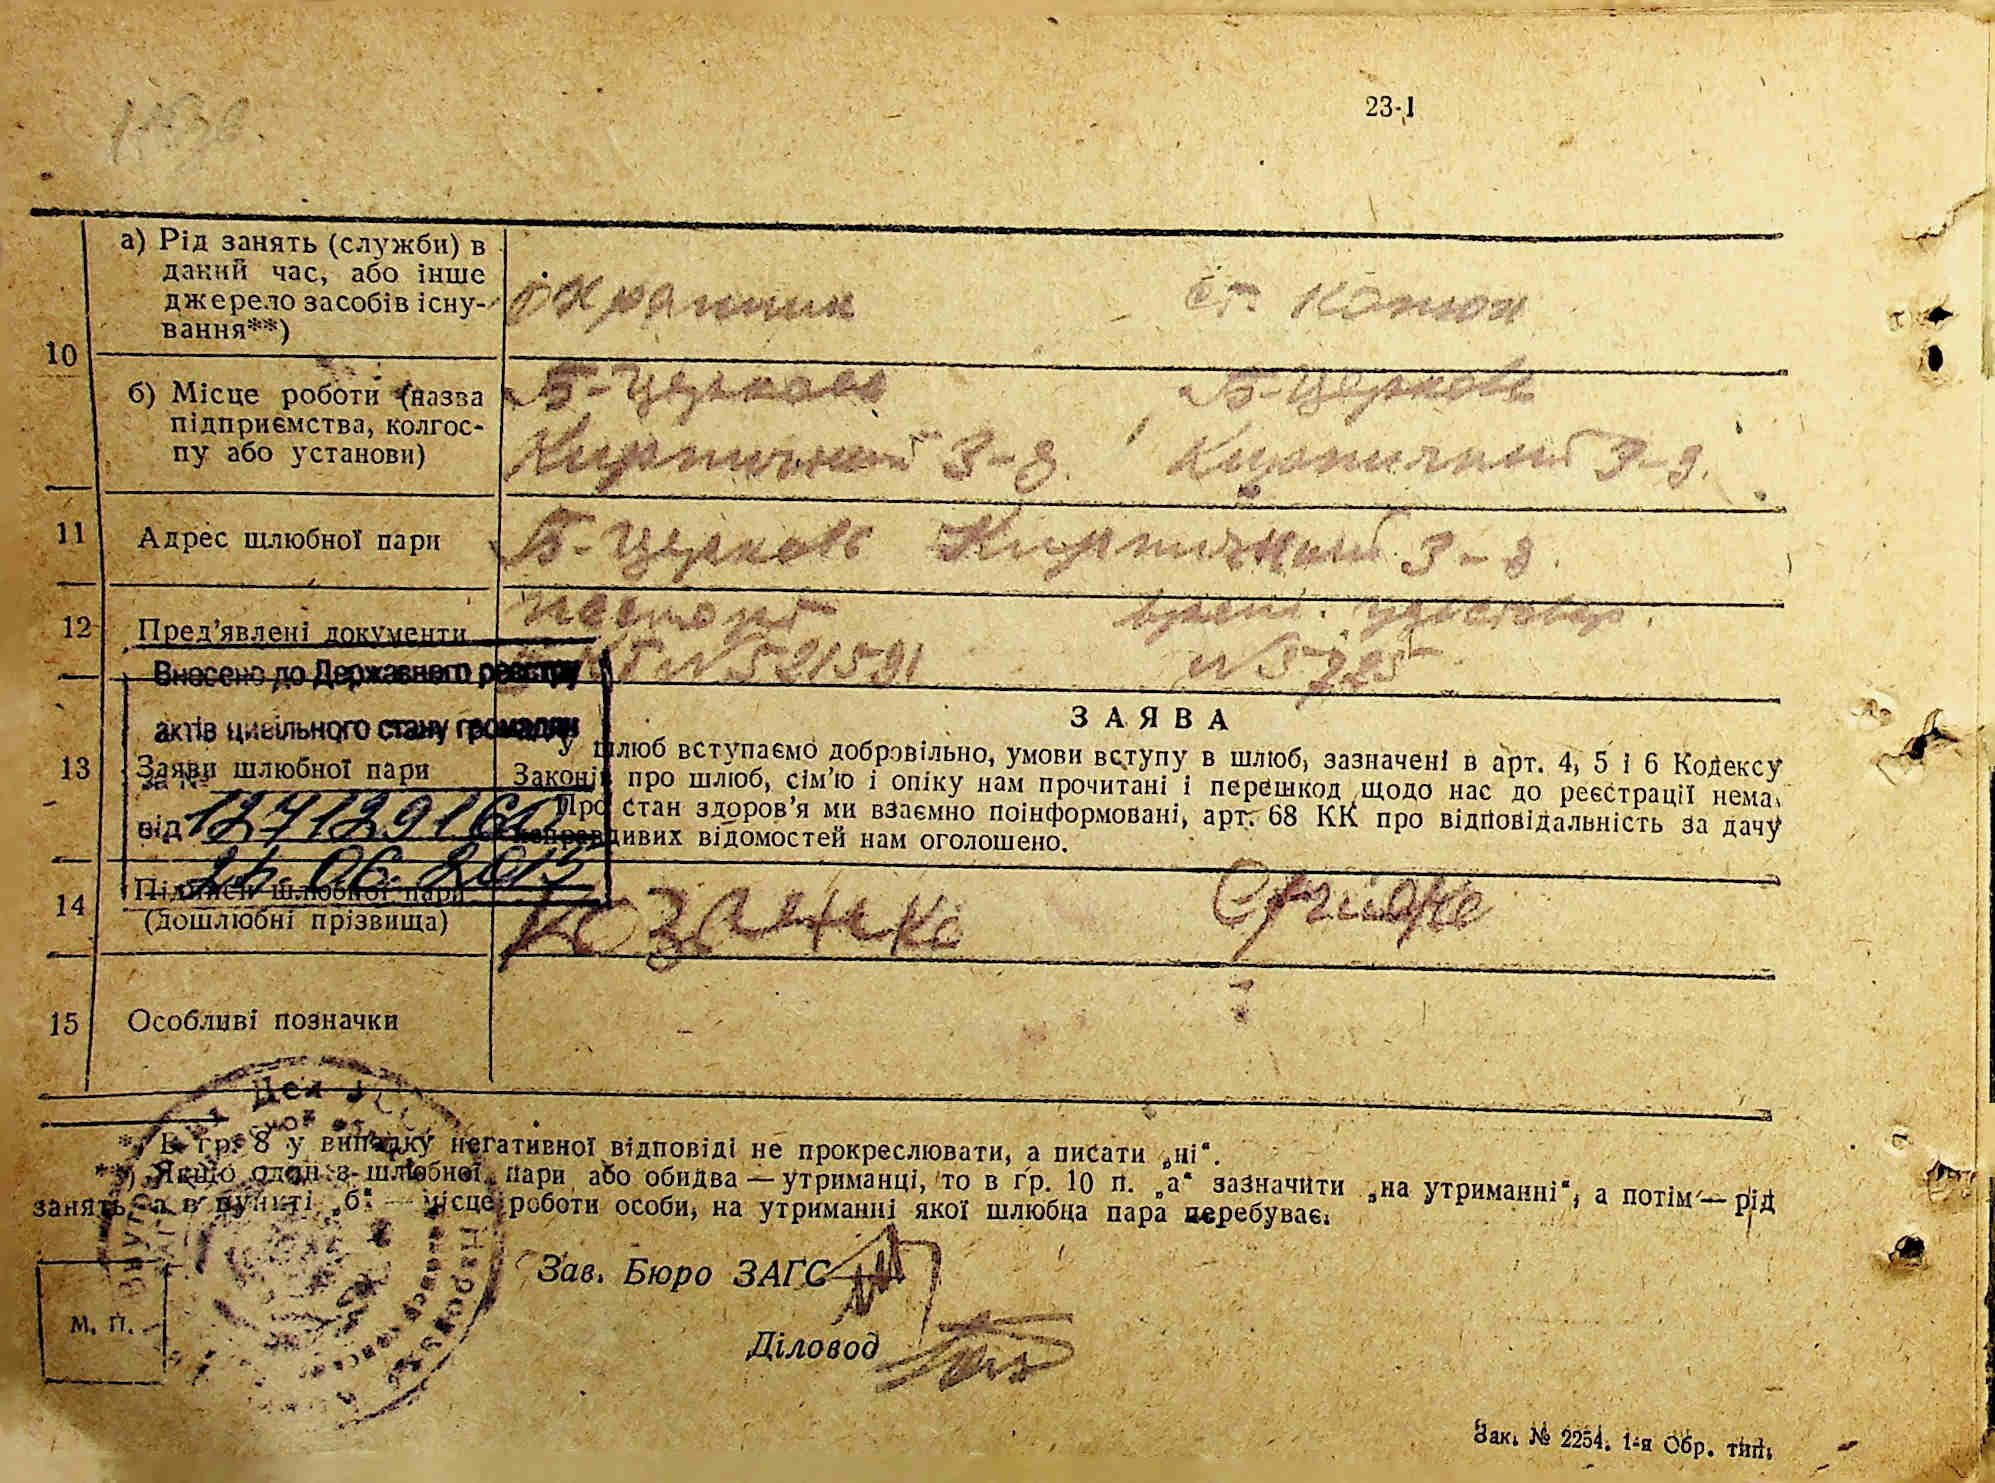 23-1
а) Рід занять (служби) в
даний час, або інше
джерело засобів існу-
вання**)
Охранник
ст. Конюх
10
б) Місце роботи (назва
підприємства, колгос-
пу або установи)
Б-Церковь
Кирпичный З-д.
Б-Церковь
Кирпичный З-д.
11
Адрес шлюбної пари
Б-Церковь Кирпичный З-д.
12
Пред'явлені документи
паспорт
N 521591
врем. удостовер.
N 5725
Внесено до Державного реєстру
актів цивільного стану громадян
за №
від 127129160
06. 2015
13
Заяви шлюбної пари
ЗАЯВА
У шлюб вступаємо добровільно, умови вступу в шлюб, зазначені в арт. 4, 5 і 6 Кодексу
Законів про шлюб, сім'ю і опіку нам прочитані і перешкод щодо нас до реєстрації нема.
Про стан здоров'я ми взаємно поінформовані, арт. 68 КК про відповідальність за дачу
неправдивих відомостей нам оголошено.
14
Підписи шлюбної пари
(дошлюбні прізвища)
15
Особливі позначки
*) В гр. 8 у випадку негативної відповіді не прокреслювати, а писати „ні“.
**) Якщо один з шлюбної пари або обидва — утриманці, то в гр. 10 п. „а“ зазначити „на утриманні“, а потім — рід
занять, а в пункті „б“ — місце роботи особи, на утриманні якої шлюбна пара перебуває.
Зав. Бюро ЗАГС
М. П.
Діловод
Зак. № 2254. 1-я Обр. тип.